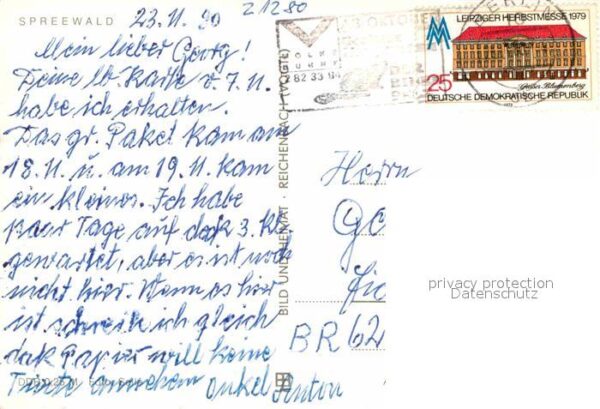 SPREEWALD
23.11.80
21280
Mein lieber Georg!
Deine lb. Karte v. 7.11.
habe ich erhalten.
Das gr. Paket kam am
18.11. u. am 19.11. kam
ein kleines. Ich habe
paar Tage auf das 3. Kl.
gewartet, aber es ist noch
nicht hier. Wenn es hier
ist schreib ich gleich
das Papier will keine
Tinte annehmen Onkel Anton
BILD UND HEIMAT · REICHENBACH (VOGTL)
LEIPZIGER HERBSTMESSE 1979
25
DEUTSCHE DEMOKRATISCHE REPUBLIK
Herrn
BR 62
privacy protection
Datenschutz